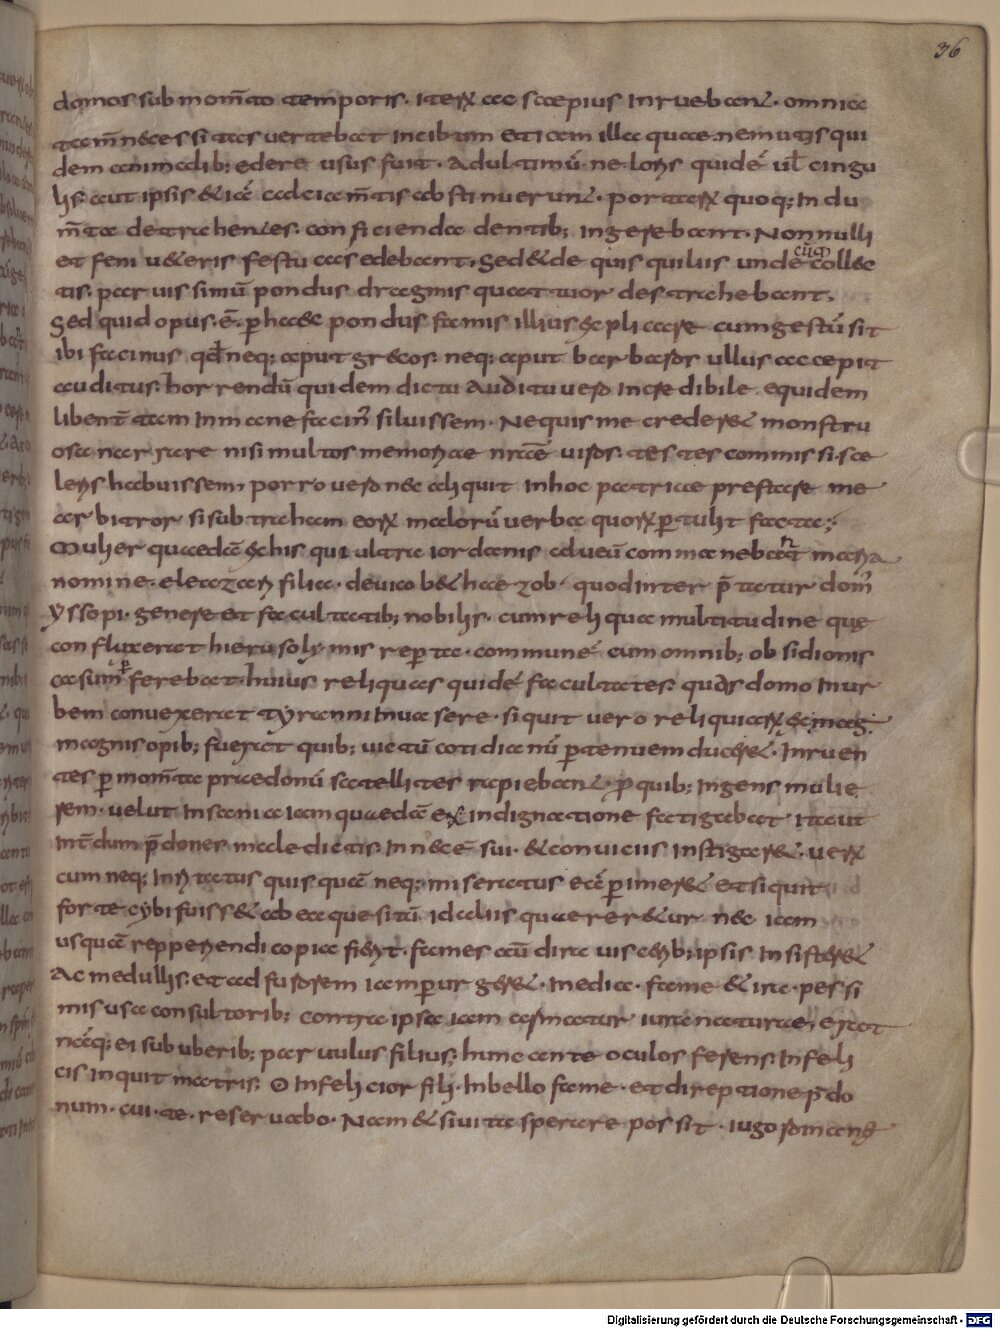 36
domos sub mom̄to temporis. iterꝝ ac saepius inruebant. omnia
tam̄ necessitas vertebat in cibum et iam illa quae nem utis qui
dem animalib; edere usus fuit. Ad ultimū ne loris quidē ul̄ cingu
lis. aut ipsis & iā calciam̄tis abstinuerunt. portarꝝ quoq; indu
m̄ta detrahentes. conficienda dentib; ingerebant. Nonnulli
et feni ueteris festucas edebant. sed & de quis quiliis undecūq; collec
tis. paruissimū pondus dragmis quattuor destrahebant.
Sed quid opus. ē. p̄ haec pondus famis illius explicare cum gestū sit
ibi facinus qd̄ neq; aput grecos. neq; aput barbaros ullus accepit
auditus. horrendū quidem dictu auditu uero incredibile. equidem
libent̄ tam inmane facin᷒ siluissem. Nequis me crederet monstru
osa narrare nisi multos memoriae nr̄ae̅ uiros. testes commissi sce
leris habuissem porro uero nec aliquit in hoc patriae prestare me
arbitror si subtraham eorꝝ malorū verba quorꝝ p̄tulit facta;
Mulier quaedā ex his qui ultra iordanis alueū commanebant maria
nomine. eleazari filia. de uico bethaezob. quod interp̄tatur dom᷒
yssopi. genere et facultatib; nobilis. cum reliqua multitudine quę
confluxerat hierusolymis reperta. communē cum omnib; obsidionis
casum p̄ferebat. huius reliquas quidē facultates. quas domo in ur
bem conuexerat tyranni inuasere. si quit vero reliquiarꝝ ex mag
magnis opib; fuerat quib; uictū cotidianū p̄ tenuem duceret. inruen
tes p̄ mom̄ta praedonū satellites rapiebant. p̄ quib; ingens mulie
rem. velut insania iam quaedā ex indignatione fatigabat ita ut
int̄dum p̄dones maledictis. in necē sui. & conuiciis instigaret. verꝝ
cum neq; inritatus quisquā neq; miseratus eā p̄imeret et si quit
forte cybi fuisset ab ea quesitū id aliis quaereretur nec iam
usquā repperiendi copia fieret. fames aū dira visceribus ipsis insisteret
Ac medullis. et ad furorem iam p̄urgeret. inedia. fame & ira. pessi
mis usa consultorib; contra ipsa iam armatur iura naturae; erat
nāq; ei sub uberib; paruulus filius; hunc ante oculos ferens. infeli
cis inquit matris. O infelicior fili. in bello fame. et direptione p̄do
num. cui. te. reseruabo. Nam & si uita sperare possit. iugo roman